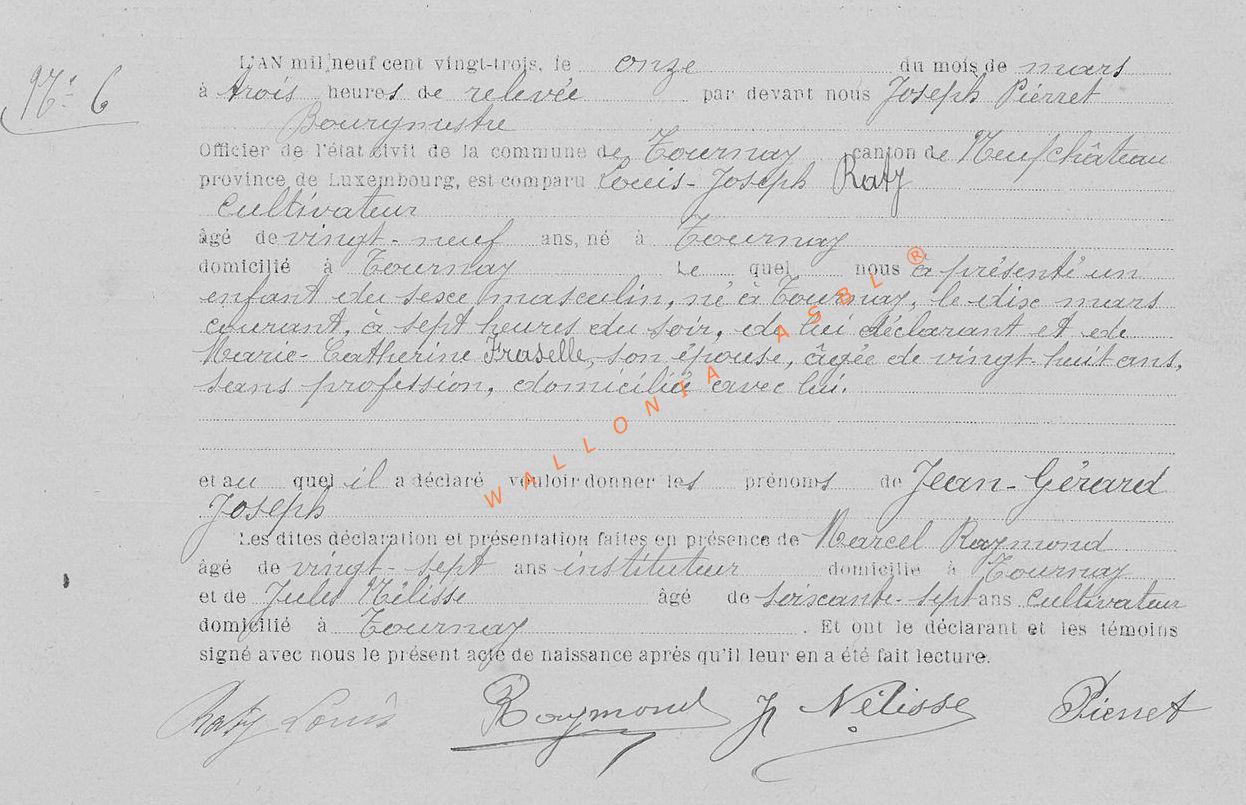 N° 6
L'AN mil neuf cent vingt-trois, le onze du mois de mars
à trois heures de relevée par devant nous Joseph Pierret
Bourgmestre
Officier de l'état civil de la commune de Tournay canton de Neufchâteau
province de Luxembourg, est comparu Louis-Joseph Raty
cultivateur
âgé de vingt-neuf ans, né à Tournay
domicilié à Tournay Le quel nous a présenté un
enfant du sexe masculin, né à Tournay, le dix mars
courant, à sept heures du soir, de lui déclarant et de
Marie-Catherine Fraselle, son épouse, âgée de vingt huit ans,
sans profession, domiciliée avec lui.
et au quel il a déclaré vouloir donner les prénoms de Jean-Gérard
Joseph
Les dites déclaration et présentation faites en présence de Marcel Raymond
âgé de vingt-sept ans instituteur domicilié à Tournay
et de Jules Nélisse âgé de soixante-sept ans cultivateur
domicilié à Tournay. Et ont le déclarant et les témoins
signé avec nous le présent acte de naissance après qu'il leur en a été fait lecture.
Raty Louis Raymond J Nélisse Pierret
WALLONIA ASBL ®